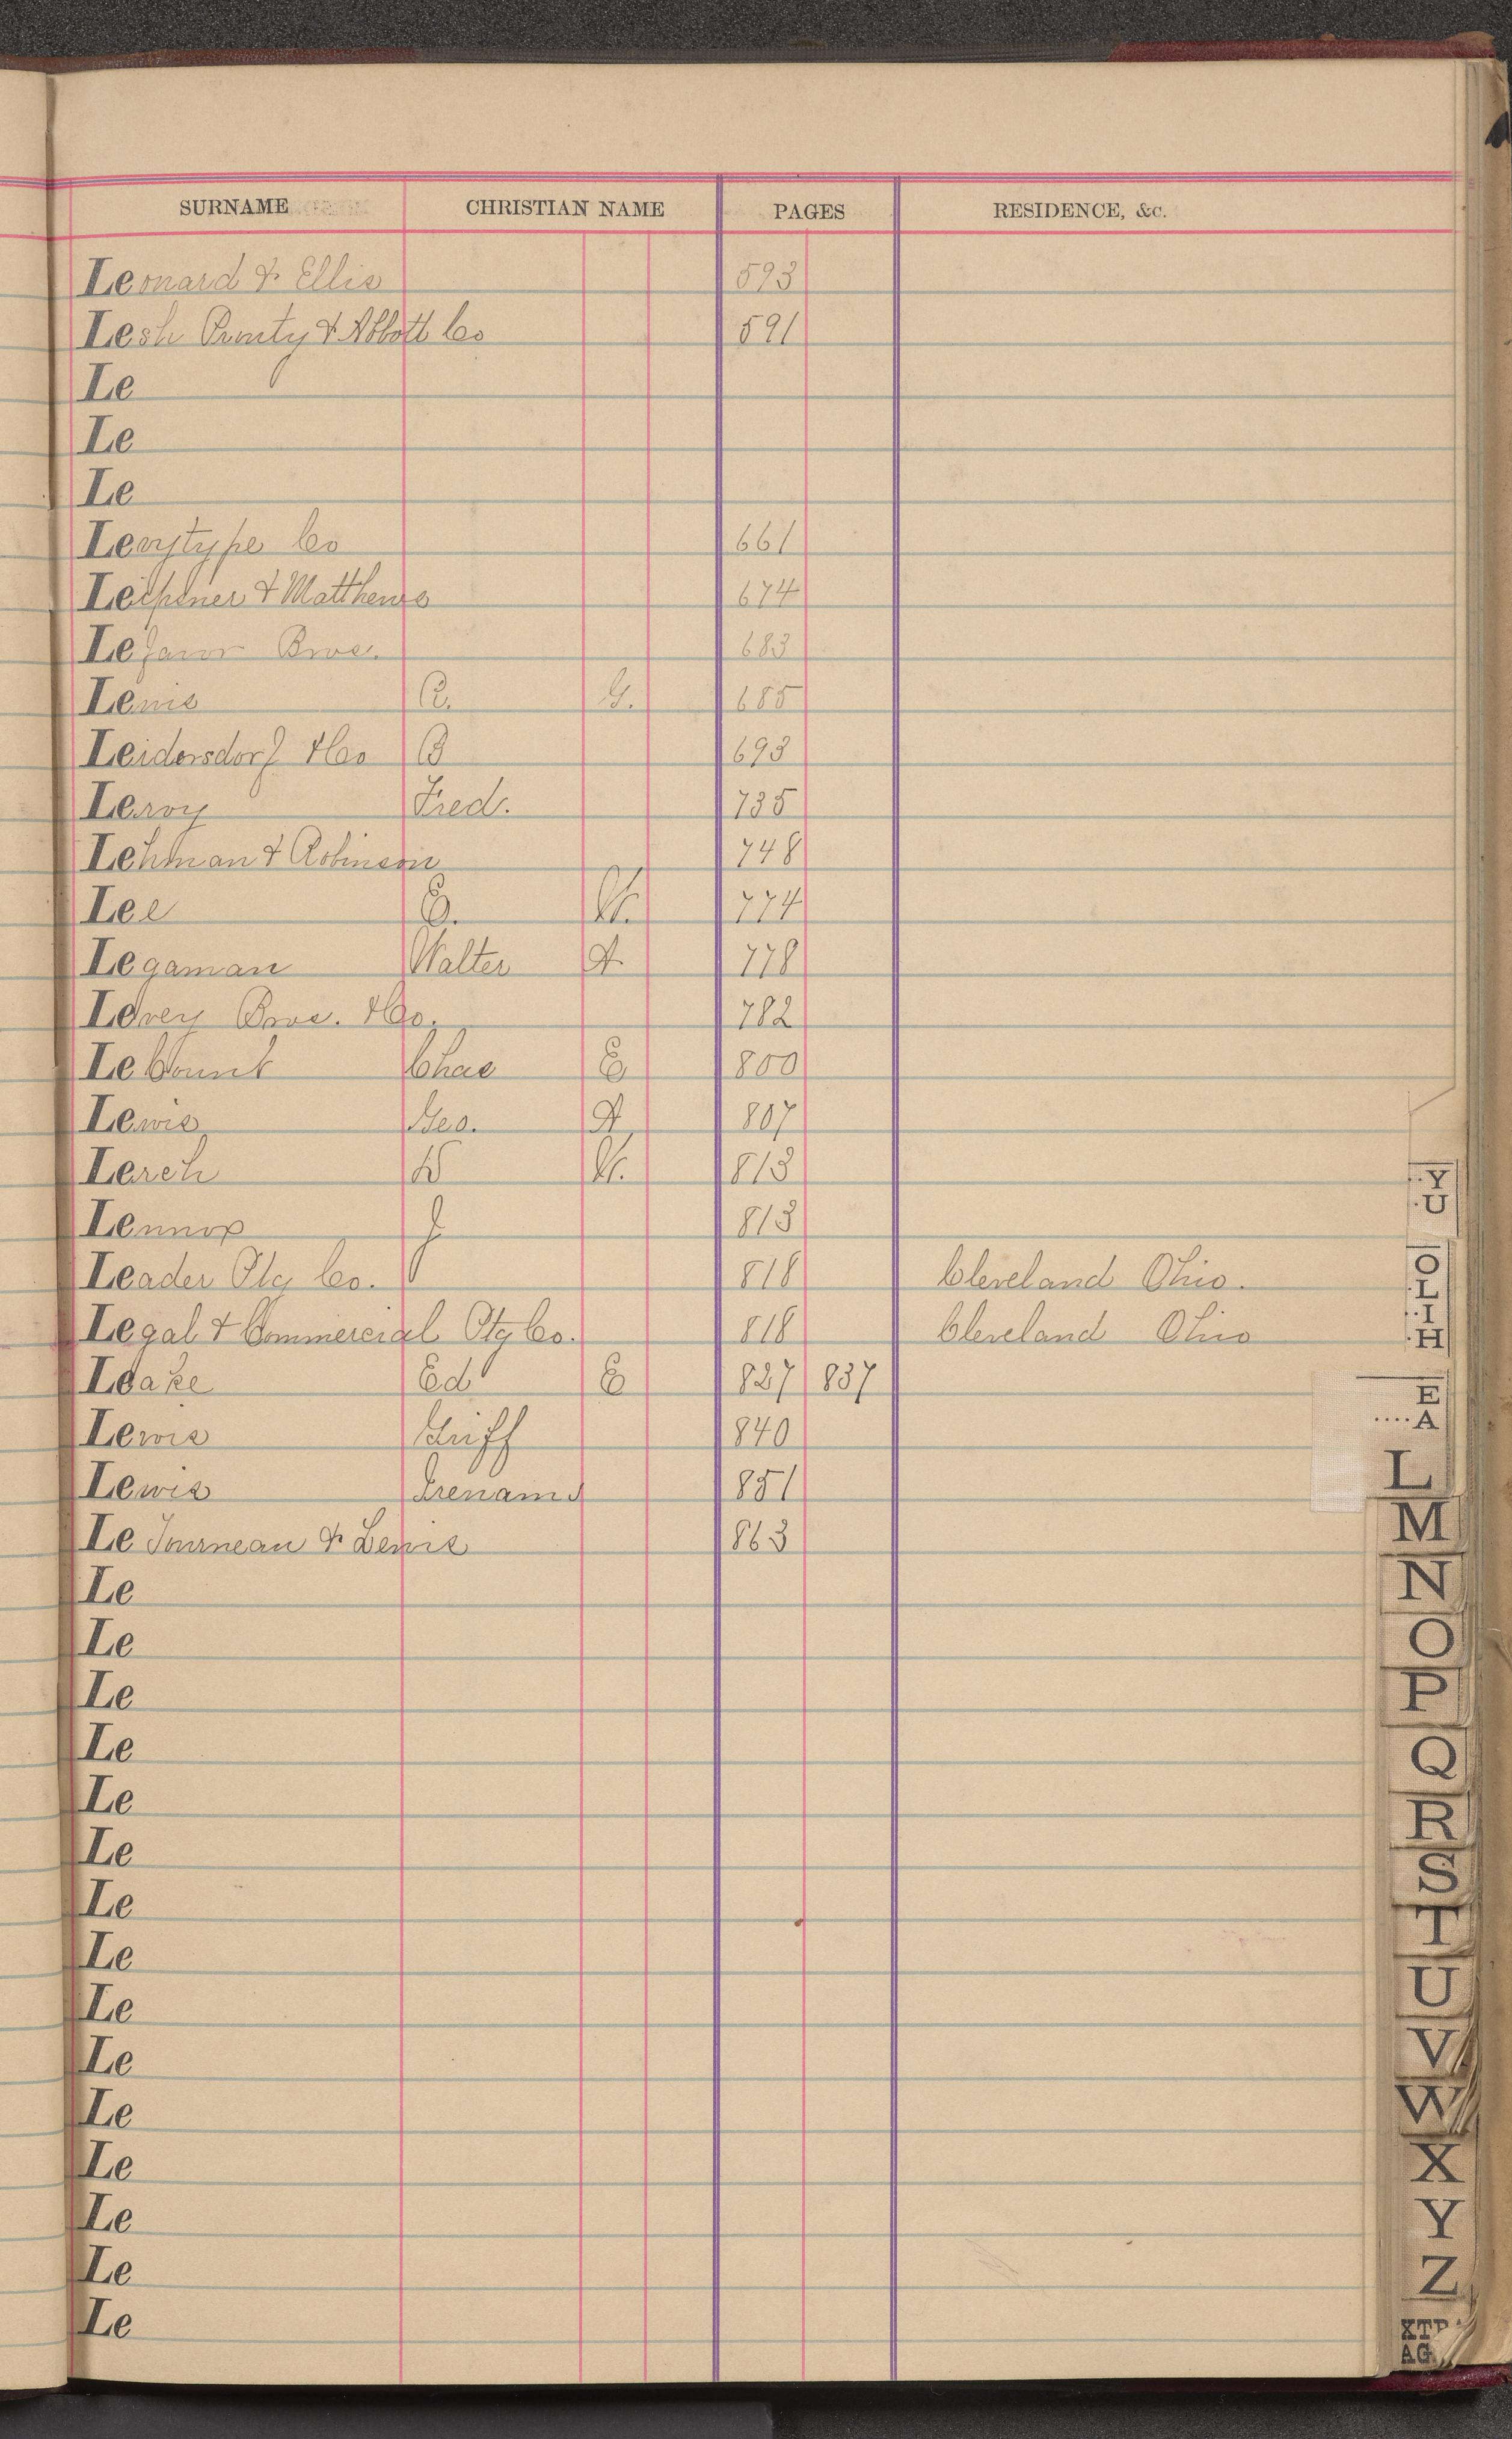 SURNAME CHRISTIAN NAME PAGES RESIDENCE, &c.
Leonard & Ellis 593
Lesh Prouty & Abbott Co 591
Le
Le
Le
Levytype Co 661
Leipziner & Matthews 674
Lefavor Bros. 683
Lewis R. G. 685
Leidersdorf & Co B 693
Leroy Fred. 735
Lehman & Robinson 748
Lee E. W. 774
Legaman Walter A. 778
Levey Bros. & Co. 782
Le Count Chas E 800
Lewis Geo. A 807
Lerch W W. 813
Lennox J 813
Leader Ptg Co. 818 Cleveland Ohio.
Legal & Commercial Ptg Co. 818 Cleveland Ohio
Leake Ed E 827 837
Lewis Griff 840
Lewis 851
Le Tourneau & Lewis 863
Le
Le
Le
Le
Le
Le
Le
Le
Le
Le
Le
Le
Le
Le
Le
Y
U
O
L
I
H
E
A
L
M
N
O
P
Q
R
S
T
U
V
W
X
Y
Z